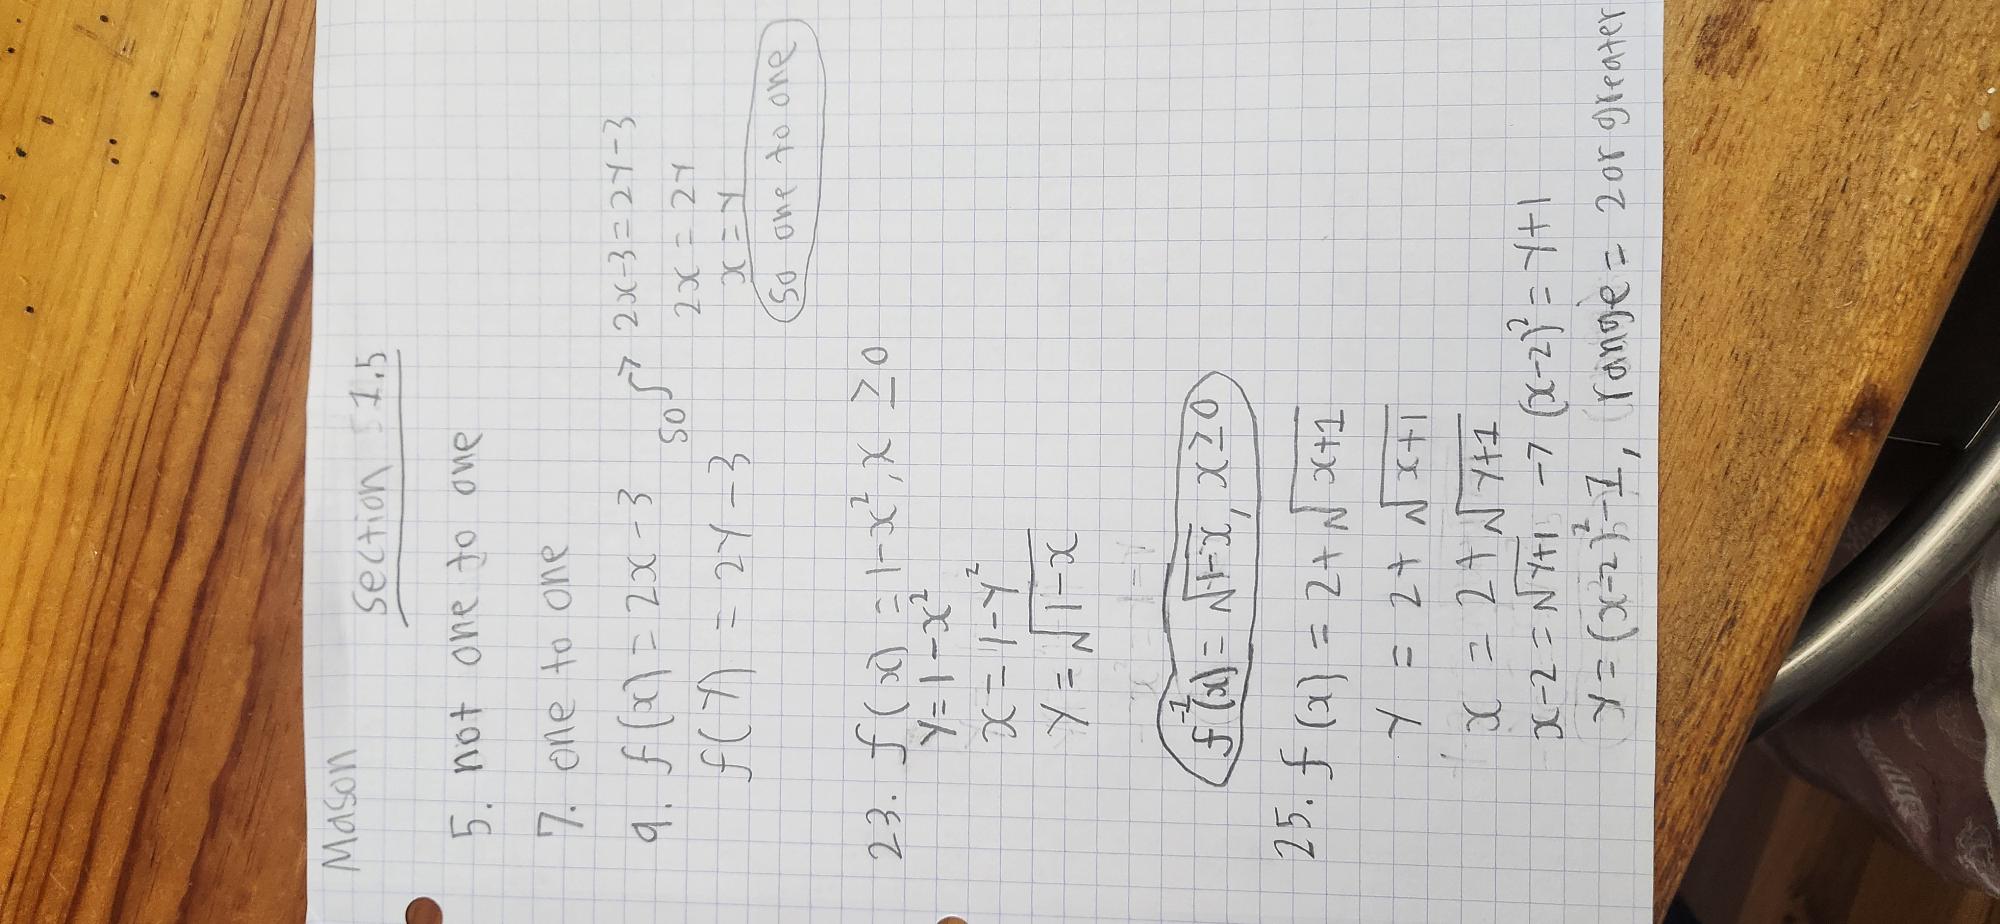 Mason
Section 1.5
5. not one to one
7. one to one
9. f(x) = 2x - 3
f(y) = 2y - 3
so → 2x-3 = 2y-3
2x = 2y
x = y
so one to one
23. f(x) = 1-x², x ≥ 0
y = 1-x²
x = 1-y²
y = √(1-x)
f⁻¹(x) = √(1-x), x ≥ 0
25. f(x) = 2+√(x+1)
y = 2+√(x+1)
x = 2+√(y+1)
x-2 = √(y+1) → (x-2)² = y+1
y = (x-2)²-1, range = 2 or greater